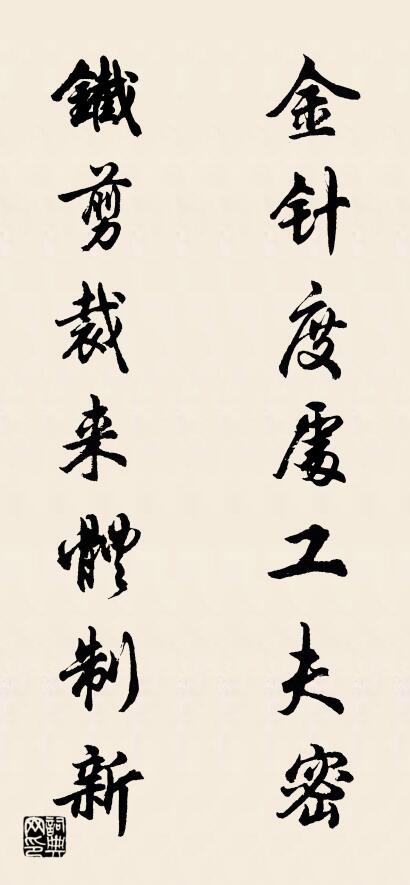 金针度處工夫密
鐵剪裁来體制新
詞典网印